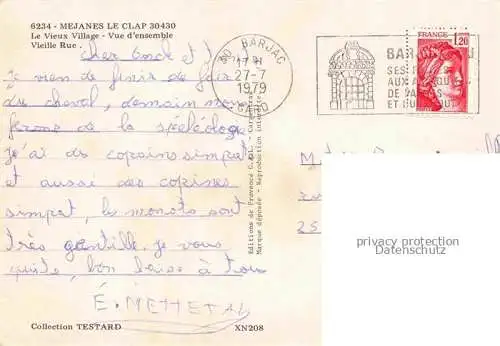 6234 - MEJANES LE CLAP 30430
Le Vieux Village - Vue d'ensemble
Vieille Rue .
Cher Oncle et
Je viens de finir de faire
du cheval, demain nous
ferons de la spéléologie
j'ai des copains simpat
et aussi des copines
simpat, les monots sont
très gentille. je vous
quitte, bon baise à tous
E. METTETAL
30 BARJAC
17 H
27-7
1979
GARD
BAR
SES
AUX
DE
ET
FRANCE
1,20
Editions de Provence
Marque déposée - Reproduction interdite
25
privacy protection
Datenschutz
Collection TESTARD
XN208